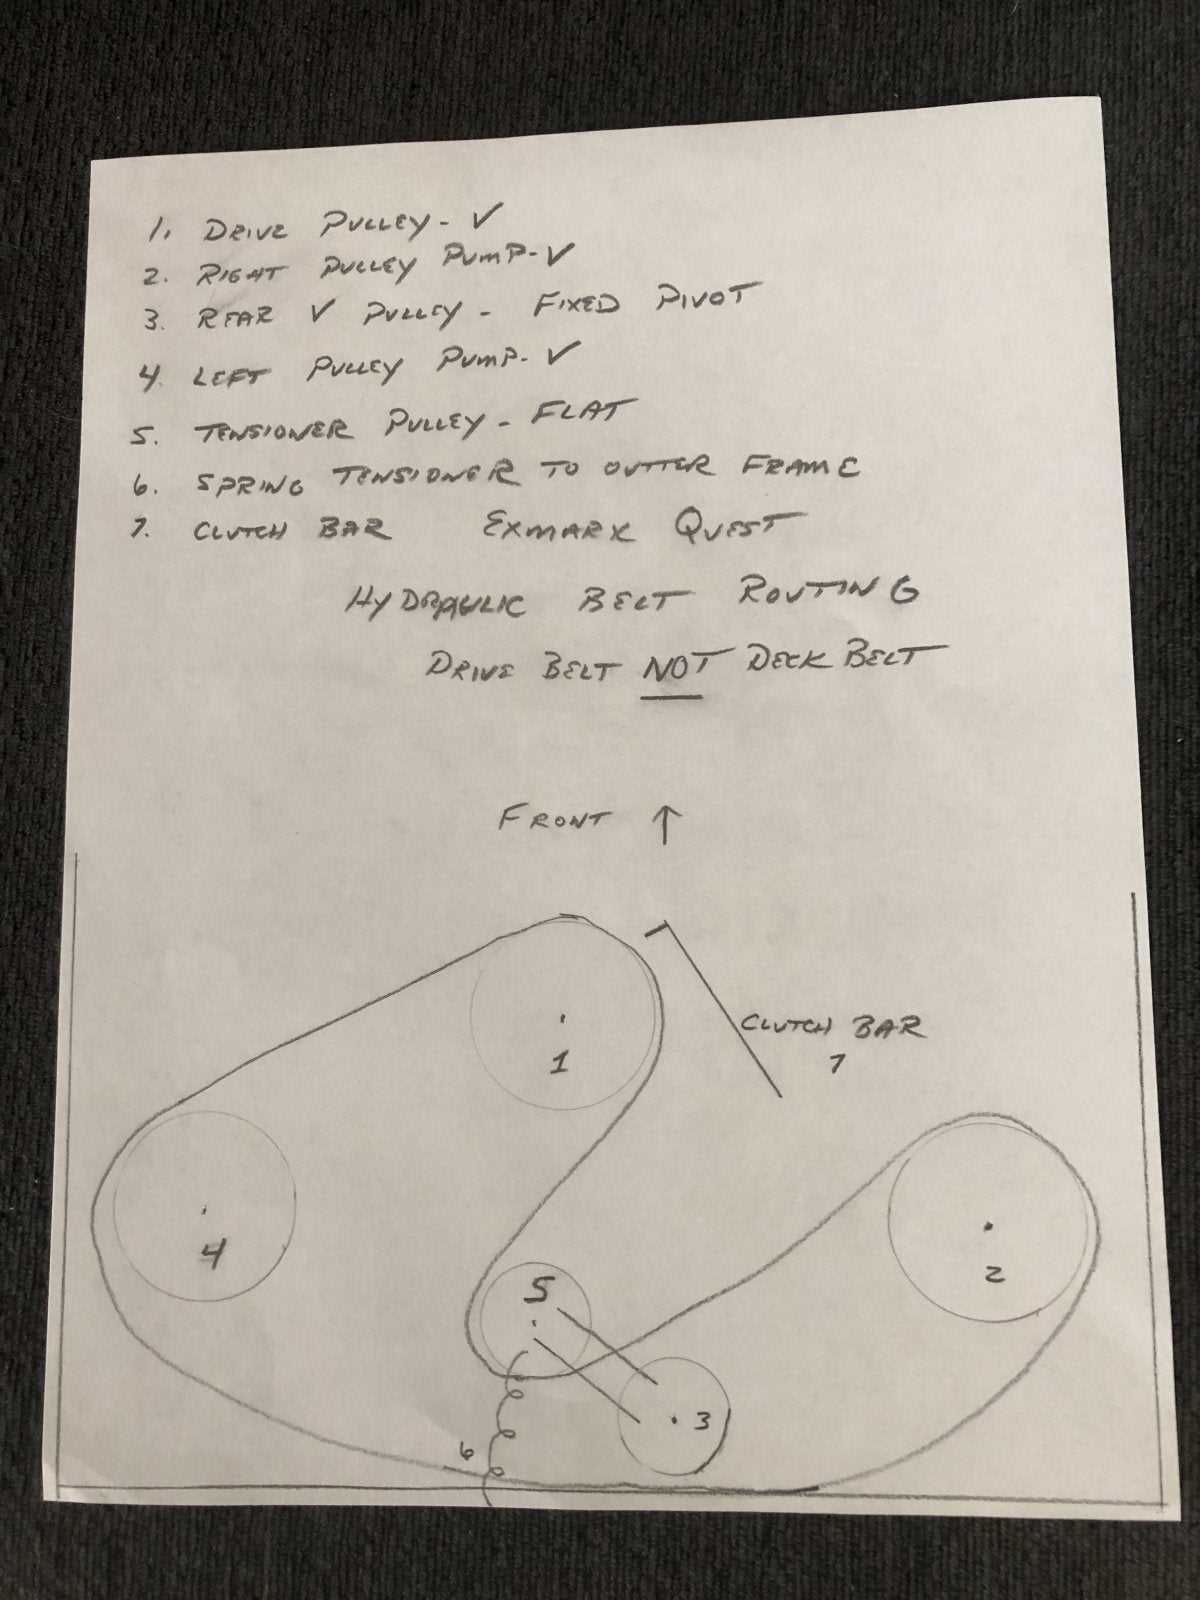 1. DRIVE PULLEY - V
2. RIGHT PULLEY PUMP - V
3. REAR V PULLEY - FIXED PIVOT
4. LEFT PULLEY PUMP - V
5. TENSIONER PULLEY - FLAT
6. SPRING TENSIONER TO OUTTER FRAME
7. CLUTCH BAR EXMARK QUEST
HYDRAULIC BELT ROUTING
DRIVE BELT NOT DECK BELT
FRONT ↑
1
CLUTCH BAR
7
4
2
5
3
6